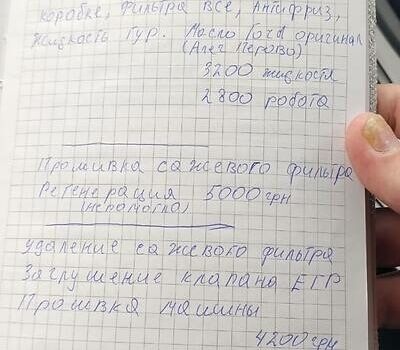 коробке, фильтра все, Антифриз,
жидкость Гур. Масло Ford оригинал
(Алег Перово)
3200 жидкости
2800 робота
Промивка сажевого фильтра
Регенерация 5000грн
удаление сажевого фильтра
Заглушение клапана ЕГР
Прошивка машины
4200грн